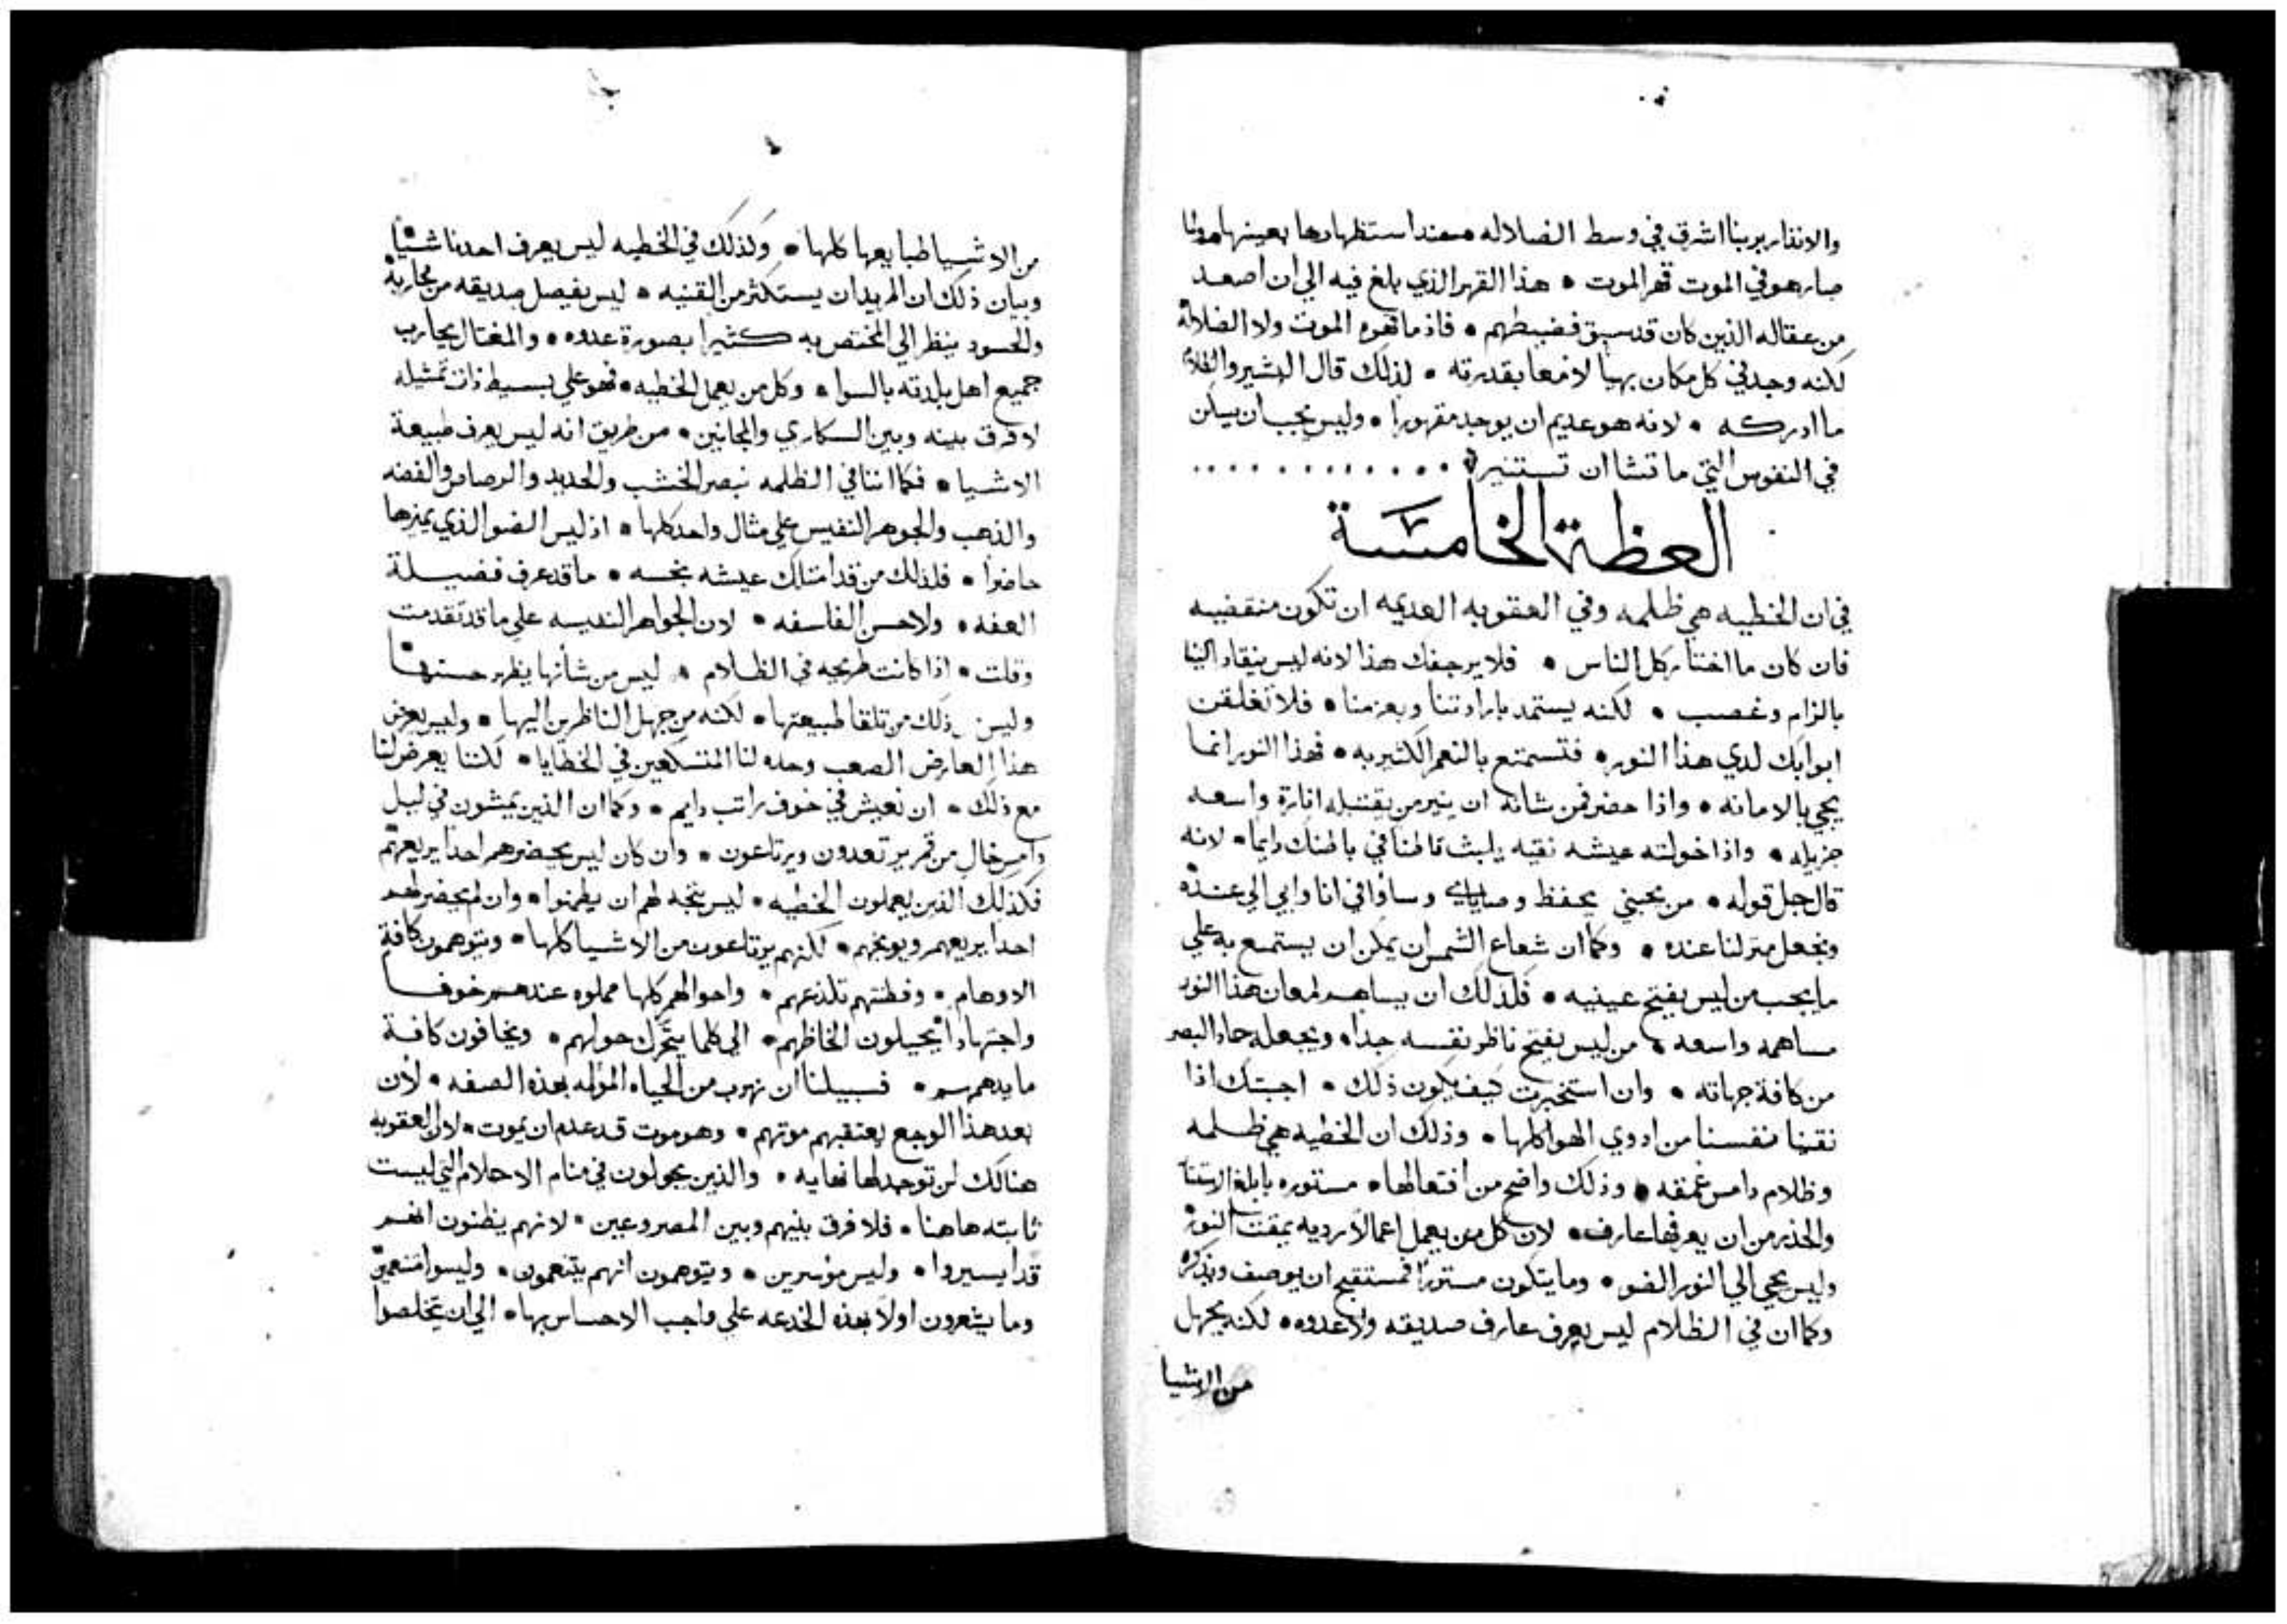 والانذار بربنا اشرق في وسط الضلاله عند استظهارها بعينها
صار هو في الموت قهر الموت • هذا القهر الذي بلغ فيه الي ان اصعد
من عقاله الذين كان قد سبق فضبطهم • فاذ ما قهره الموت ولا الضلالة
لكنه وجد في كل مكان بهيا لامعا بقدرته • لذلك قال البشير والظلام
ما ادركه • لانه هو عديم ان يوجد مقهورا • وليس يجب ان يسكن
في النفوس التي ما تشا ان تستنير
العظة الخامسة
في ان الخطيه هي ظلمه وفي العقوبه العديمه ان تكون منقضيه
فان كان ما اختار كل الناس • فلا يرجفك هذا لانه ليس ينقاد الينا
بالزام وغصب • لكنه يستمد بارادتنا وبعزمنا • فلا تغلقن
ابوابك لدي هذا النور • فتستمتع بالنعم الكثير به • فهذا النور انما
يجي بالامانه • واذا حضر فمن شانه ان ينير من يقتبله انارة واسعه
جزيله • واذا خولته عيشه نقيه يلبث قاطنا في باطنك دايما • لانه
قال جل قوله • من يحبني يحفظ وصاياي وساوافي انا وابي الي عنده
ونجعل منزلنا عنده • وكما ان شعاع الشمس ان يمكن ان يستمتع به علي
ما يجب من ليس يفتح عينيه • فلذلك ان يساهم لمعان هذا النور
مساهمه واسعه • من ليس يفتح ناظر نفسه جدا • ويجعله حاد البصر
من كافة جهاته • وان استخبرت كيف يكون ذلك • اجبتك اذا
نقينا نفسنا من ادوي الهوا كلها • وذلك ان الخطيه هي ظلمه
وظلام دامس عمقه • وذلك واضح من افتعالها • مستوره بابلغ الاستتار
والحذر من ان يعرفها عارف • لان كل من يعمل اعمالا رديه يمقت النور
وليس يجي الي النور الضو • وما يتكون مستترا فمستقبح ان يوصف ويذكر
وكما ان في الظلام ليس يعرف عارف صديقه ولا عدوه • لكنه يجهل
من الاشيا
من الاشيا طبايعها كلها • وكذلك في الخطيه ليس يعرف احدنا شيئا
وبيان ذلك ان المريد ان يستكثر من القنيه • ليس يفصل صديقه من محاربه
والحسود ينظر الي المختص به كثيرا بصورة عدوه • والمغتال يحارب
جميع اهل بلدته بالسوا • وكل من يعمل الخطيه • فهو علي بسيط ذات تمثيله
لا فرق بينه وبين السكاري والمجانين • من طريق انه ليس يعرف طبيعة
الاشيا • فكما اننا في الظلمه نبصر الخشب والحديد والرصاص والفضه
والذهب والجوهر النفيس علي مثال واحد كلها • اذ ليس الضو الذي يميزها
حاضرا • فلذلك من قد امتلك عيشه نجسه • ما قد عرف فضيلة
العفه • ولا حسن الفلسفه • لان الجواهر النفيسه علي ما قد تقدمت
وقلت • اذا كانت طريحه في الظلام • ليس من شأنها يظهر حسنها
وليس ذلك من تلقا طبيعتها • لكنه من جهل الناظرين اليها • وليس يعرض
هذا العارض الصعب وحده لنا المتسكعين في الخطايا • لكننا يعرض لنا
مع ذلك • ان نعيش في خوف راتب دايم • وكما ان الذين يمشون في ليل
دامس خال من قمر يرتعدون ويرتاعون • وان كان ليس يحضرهم احدا يريعهم
فكذلك الذين يعملون الخطيه • ليس يتجه لهم ان يطمنوا • وان لم يحضر لهم
احدا يريعهم ويوبخهم • لكنهم يرتاعون من الاشيا كلها • ويتوهمون كافة
الاوهام • وفطنتهم تلذعهم • واحوالهم كلها مملوه عندهم خوفا
واجتهادا يجيلون الحاظهم • الي كلما يتحرك حولهم • ويخافون كافة
ما يدهمهم • فسبيلنا ان نهرب من الحياه المؤلمه بهذه الصفه • لان
بعد هذا الوجع يعتقبهم موتهم • وهو موت قد عدم ان يموت • لان العقوبه
هنالك لن توجد لها نهايه • والذين يجولون في منام الاحلام التي ليست
ثابته هاهنا • فلا فرق بينهم وبين المصروعين • لانهم يظنون انهم
قد ايسروا • وليس مؤسرين • ويتوهمون انهم يتنعمون • وليسوا متنعمين
وما يشعرون اولا بهذه الخدعه علي واجب الاحساس بها • الي ان يتخلصوا